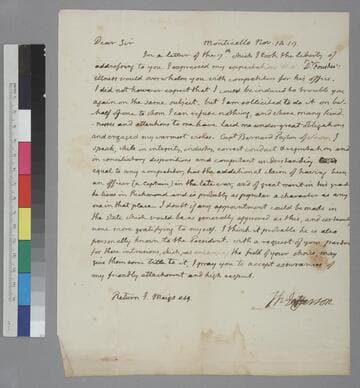 Dear Sir
Monticello Nov. 12. 17.
In a letter of the 7th inst. I took the liberty of
addressing to you I expressed my expectation that Dr Foushee's
illness would overwhelm you with competitors for his office.
I did not however expect that I could be induced to trouble you
again on the same subject, but I am sollicited to do it on be-
half of one to whom I can refuse nothing, and whose many kind-
nesses and attentions to me have laid me under great obligation
and engaged my warmest wishes. Capt Bernard Peyton of whom I
speak, while in integrity, industry, correct conduct & regulation and
in conciliatory dispositions and competent understanding
equal to any competitor, has the additional claim of having been
an officer (a Captain) in the late war, and of great merit in his grade
he lives in Richmond and is probably as popular a character as any
one in that place. I doubt if any appointment could be made in
the state which would be as generally approved as this, and certainly
none more gratifying to myself. I think it probable he is also
personally known to the President. with a request of your pardon
for these intrusions, which, as the field of your choice, may
give them some title to it, I pray you to accept assurances of
my friendly attachment and high respect.
Th: Jefferson
Return J. Meigs esq.